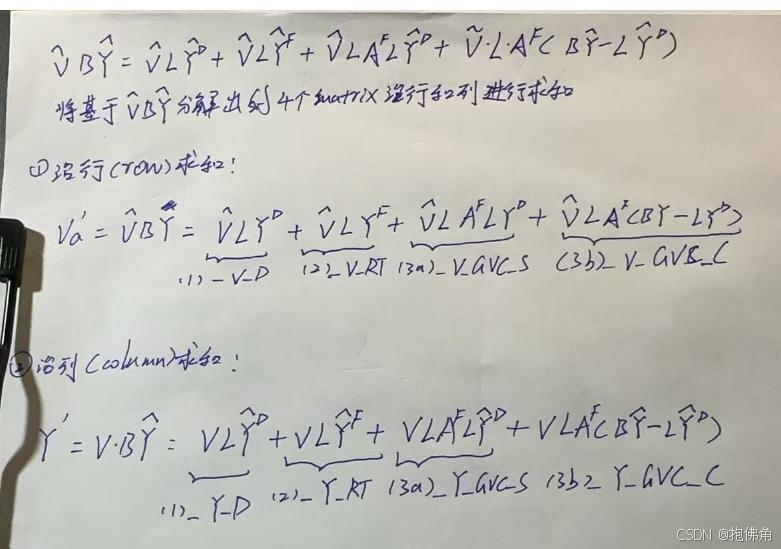 V̂BŶ = V̂LŶᴰ + V̂LŶᶠ + V̂LAᶠLŶᴰ + Ṽ·L·Aᶠ(BŶ-LŶᴰ)
将基于V̂BŶ分解出的4个matrix沿行和列进行求和
①沿行(row)求和:
Va' = V̂BY = V̂LYᴰ + V̂LYᶠ + V̂LAᶠLYᴰ + V̂LAᶠ(BY-LYᴰ)
(1)_V_D (2)_V_RT (3a)_V_GVC_S (3b)_V_GVC_C
②沿列(column)求和:
Y' = V·BŶ = VLŶᴰ + VLŶᶠ + VLAᶠLŶᴰ + VLAᶠ(BŶ-LŶᴰ)
(1)_Y_D (2)_Y_RT (3a)_Y_GVC_S (3b)_Y_GVC_C
CSDN @抱佛角